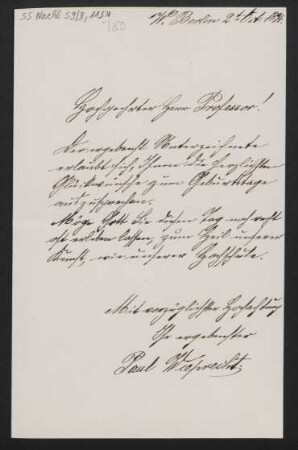 55 Nachl 59/B, 1154
180
W. Berlin 2t Oct. 1894.
Hochgeehrter Herr Professor!
Der ergebenst Unterzeichnete
erlaubt sich, Ihnen die herzlichsten
Glückwünsche zum Geburtstage
auszusprechen.
Möge Gott Sie diesen Tag noch recht
oft erleben lassen, zum Heil unserer
Kunst, wie unserer Hochschule.
Mit vorzüglichster Hochachtung
Ihr ergebenster
Paul Wieprecht.